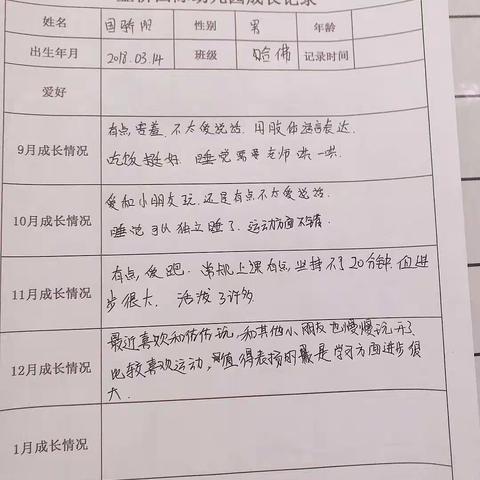 国际幼儿园成长记录
姓名 国骄阳 性别 男 年龄
出生年月 2018.03.14 班级 哈佛 记录时间
爱好
9月成长情况
有点害羞.不太爱说话.用肢体语言表达.
吃饭挺好.睡觉需要老师哄一哄.
10月成长情况
爱和小朋友玩.还是有点不太爱说话.
睡觉可以独立睡了.运动方面不错.
11月成长情况
有点爱跑.常规上课有点坚持不了20分钟.但进
步很大.活泼了许多
12月成长情况
最近喜欢和佑佑玩,和其他小朋友也慢慢玩开了.
比较喜欢运动,值得表扬的是学习方面进步很
大.
1月成长情况